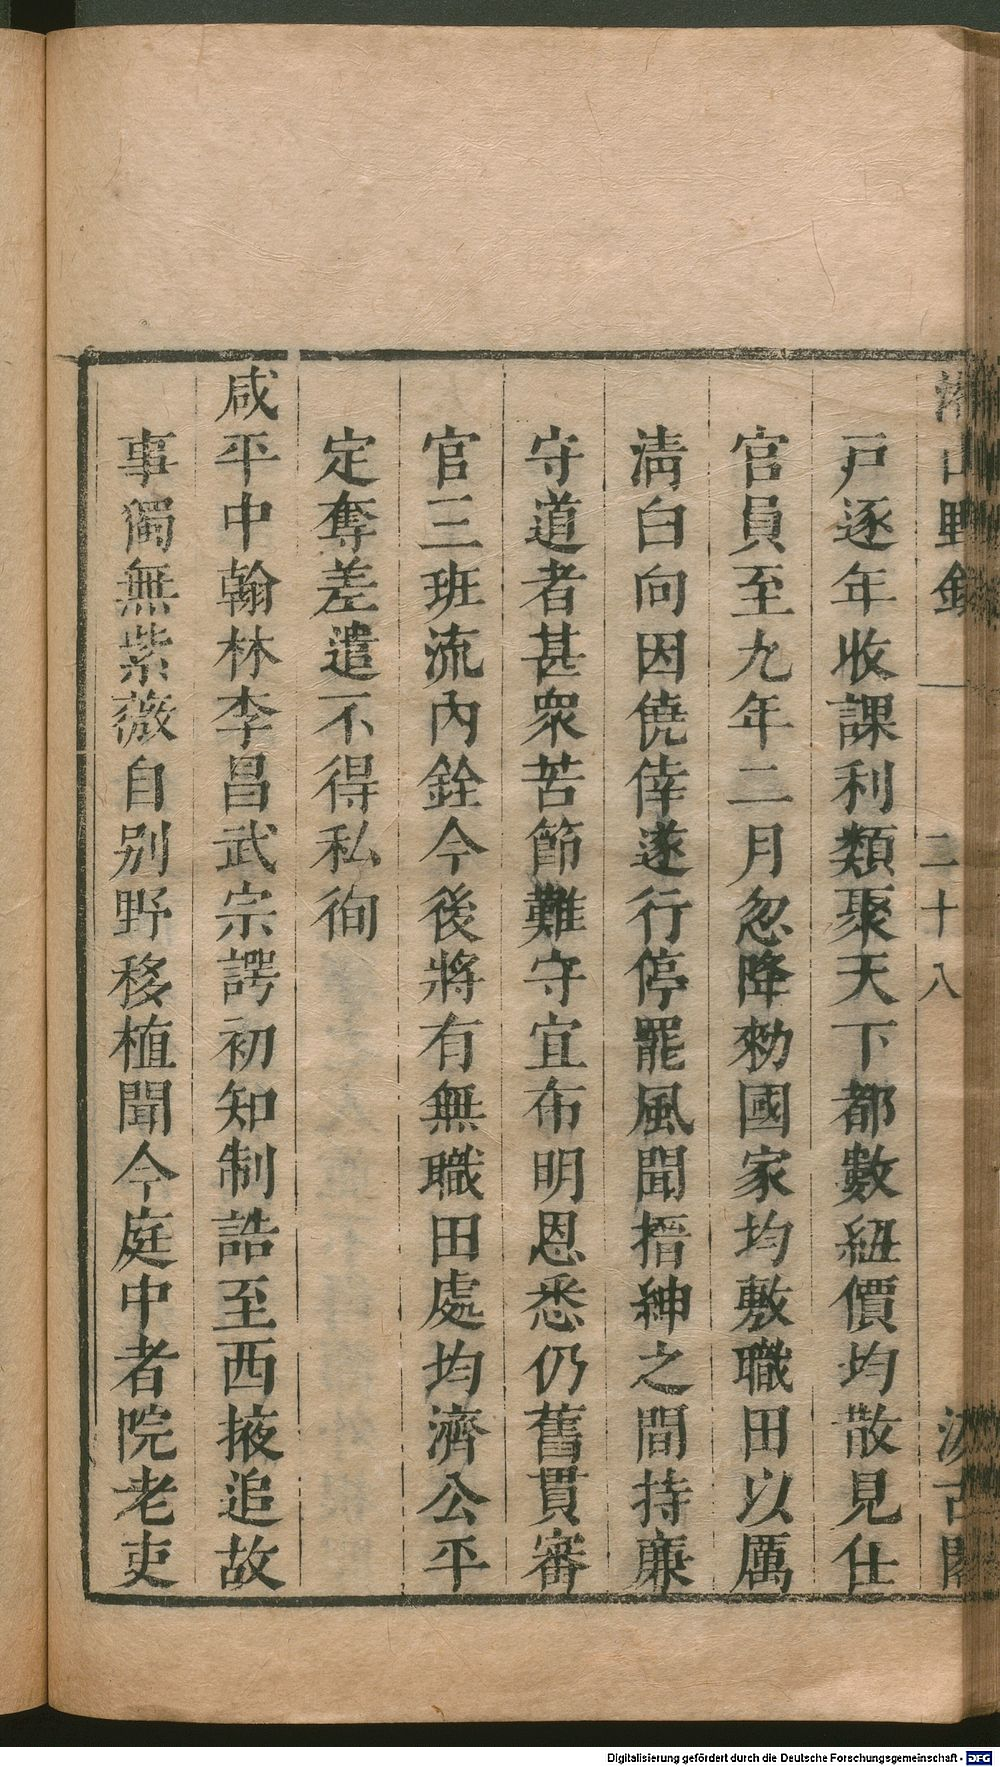 湘山野錄 一 二十八 汲古閣
戸逐年收課利類聚天下都數紐價均散見仕
官員至九年二月忽降勑國家均敷職田以厲
淸白向因僥倖遂行停罷風聞搢紳之間持廉
守道者甚衆苦節難守宜布明恩悉仍舊貫審
官三班流內銓今後將有無職田處均濟公平
定奪差遣不得私徇
咸平中翰林李昌武宗諤初知制誥至西掖追故
事獨無紫薇自别野移植聞今庭中者院老吏
Digitalisierung gefördert durch die Deutsche Forschungsgemeinschaft - DFG